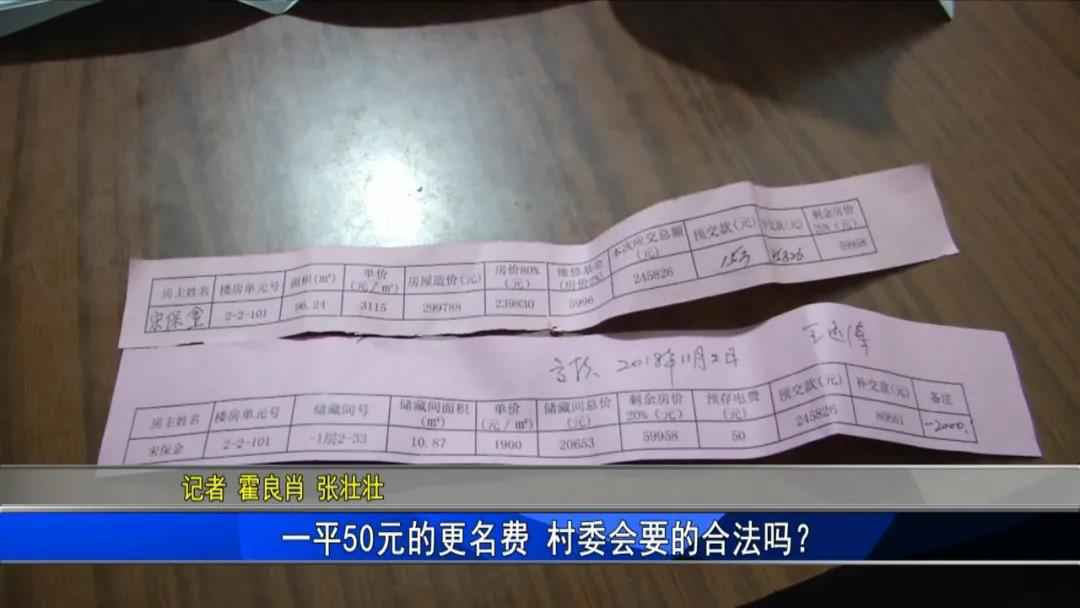 房主姓名 楼房单元号 面积(㎡) 单价(元/㎡) 房屋造价(元) 房价80%(元) 维修基金(房价2%) 本次应交总额(元) 预交款(元) 补交款(元) 剩余房价20%(元)
宋保金 2-2-101 96.24 3115 299788 239830 5996 245826 15万 95826 59958
2018年11月2日
房主姓名 楼房单元号 储藏间号 储藏间面积(㎡) 单价(元/㎡) 储藏间总价(元) 剩余房价20%(元) 预存电费(元) 预交款(元) 补交款(元) 备注
宋保金 2-2-101 -1层2-33 10.87 1900 20653 59958 50 245826 80661 -2000
记者 霍良肖 张壮壮
一平50元的更名费 村委会要的合法吗？